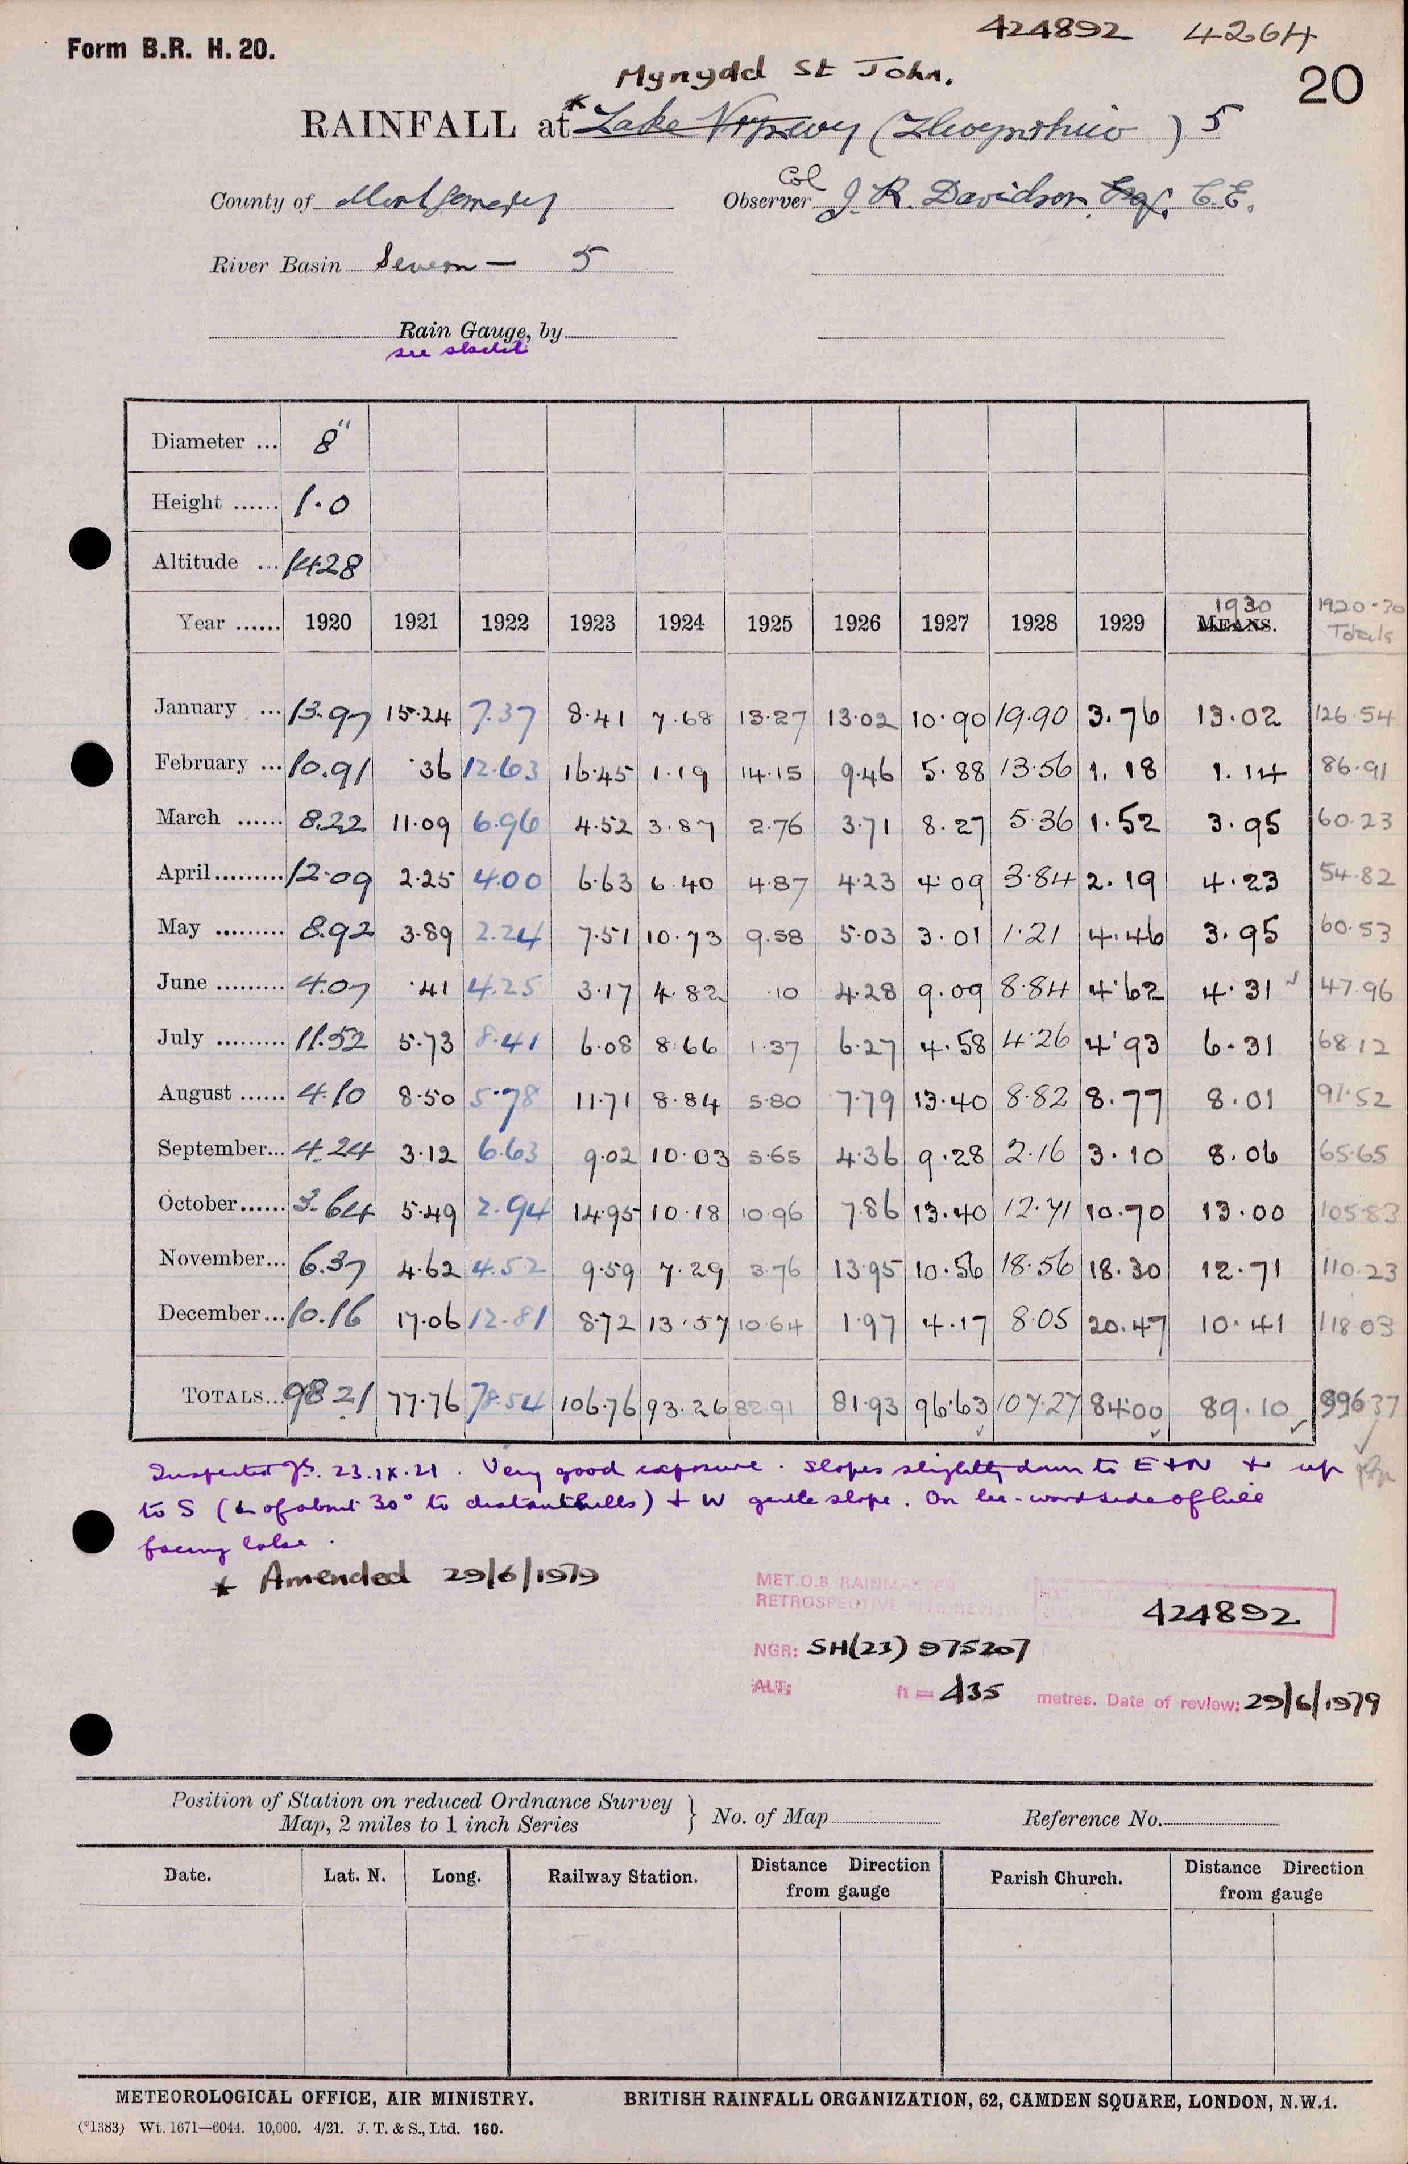 424892 4264
Form B.R. H. 20.
20
Mynydd St John.
RAINFALL at * Lake Vyrnwy ( ) 5
County of Montgomery
Col
Observer J. R. Davidson, Esq. C.E.
River Basin Severn — 5
Rain Gauge, by
see
Diameter ... 8"
Height ...... 1.0
Altitude ... 1428
Year ...... 1920 1921 1922 1923 1924 1925 1926 1927 1928 1929 1930 MEANS. 1920-30 Totals
January ... 13.97 15.24 7.37 8.41 7.68 13.27 13.02 10.90 19.90 3.76 13.02 126.54
February ... 10.91 .36 12.63 16.45 1.19 14.15 9.46 5.88 13.56 1.18 1.14 86.91
March ...... 8.22 11.09 6.96 4.52 3.87 2.76 3.71 8.27 5.36 1.52 3.95 60.23
April ......... 12.09 2.25 4.00 6.63 6.40 4.87 4.23 4.09 3.84 2.19 4.23 54.82
May ......... 8.92 3.89 2.24 7.51 10.73 9.58 5.03 3.01 1.21 4.46 3.95 60.53
June ......... 4.07 .41 4.25 3.17 4.82 .10 4.28 9.09 8.84 4.62 4.31 47.96
July ......... 11.52 5.73 8.41 6.08 8.66 1.37 6.27 4.58 4.26 4.93 6.31 68.12
August ...... 4.10 8.50 5.78 11.71 8.84 5.80 7.79 13.40 8.82 8.77 8.01 91.52
September... 4.24 3.12 6.63 9.02 10.03 5.65 4.36 9.28 2.16 3.10 8.06 65.65
October...... 3.64 5.49 2.94 14.95 10.18 10.96 7.86 13.40 12.71 10.70 13.00 105.83
November... 6.37 4.62 4.52 9.59 7.29 3.76 13.95 10.56 18.56 18.30 12.71 110.23
December... 10.16 17.06 12.81 8.72 13.57 10.64 1.97 4.17 8.05 20.47 10.41 118.03
TOTALS... 98.21 77.76 78.54 106.76 93.26 82.91 81.93 96.63 107.27 84.00 89.10 996.37
Inspected 23.IX.21. Very good exposure. Slopes slightly down to E + N + up
to S (∠ of about 30° to distant hills) + W gentle slope. On lee-ward side of hill
facing lake.
* Amended 29/6/1979
MET.O.8 RAINMASTER
RETROSPECTIVE REVIEW
424892
NGR: SH(23) 975207
ALT: ft = 435 metres. Date of review: 29/6/1979
Position of Station on reduced Ordnance Survey
Map, 2 miles to 1 inch Series } No. of Map Reference No.
Date. Lat. N. Long. Railway Station. Distance Direction from gauge Parish Church. Distance Direction from gauge
METEOROLOGICAL OFFICE, AIR MINISTRY. BRITISH RAINFALL ORGANIZATION, 62, CAMDEN SQUARE, LONDON, N.W.1.
(*1383) Wt. 1671—6044. 10,000. 4/21. J. T. & S., Ltd. 160.